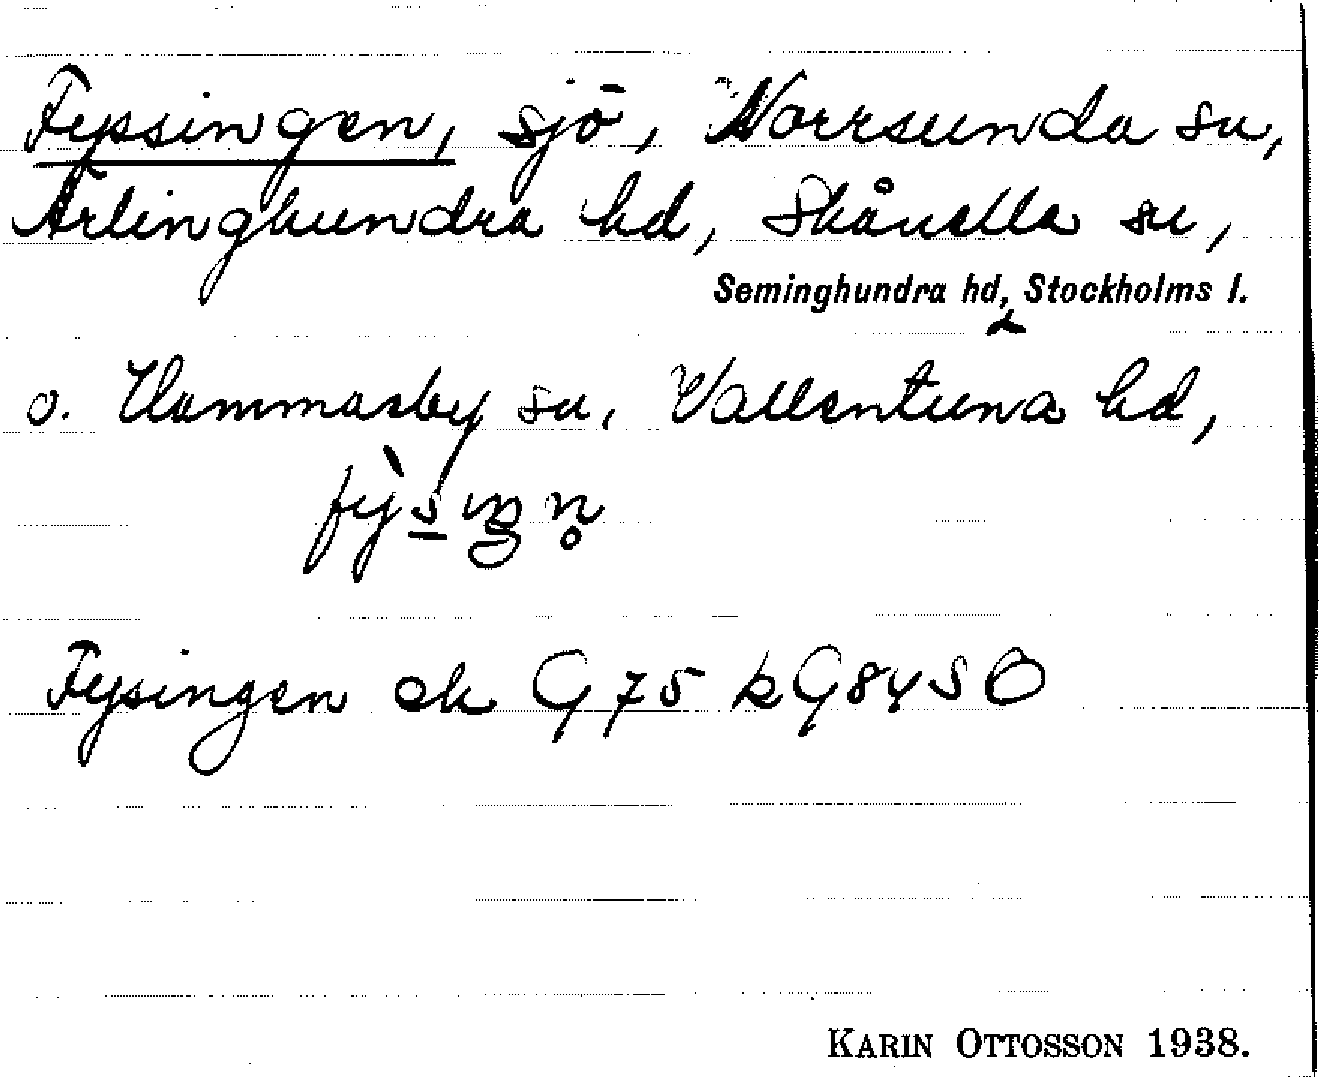 Fyssingen, sjö, Norrsunda sn,
Ärlinghundra hd, Skånella sn,
Seminghundra hd, Stockholms l.
o. Hammarby sn, Vallentuna hd,
Fysingen ek G 75 k G 84 S Ö
KARIN OTTOSSON 1938.